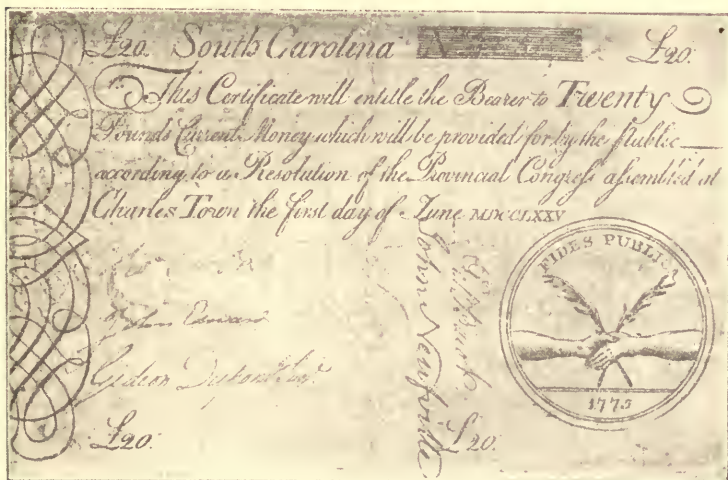 £20. South Carolina N £20.
This Certificate will entitle the Bearer to Twenty
Pounds Current Money which will be provided for by the Public
according to a Resolution of the Provincial Congress assembled at
Charles Town the first day of June MDCCLXXV
FIDES PUBLICA
John Edwards
Gideon Dupont Junr.
John Neufville
1775
£20.
£20.